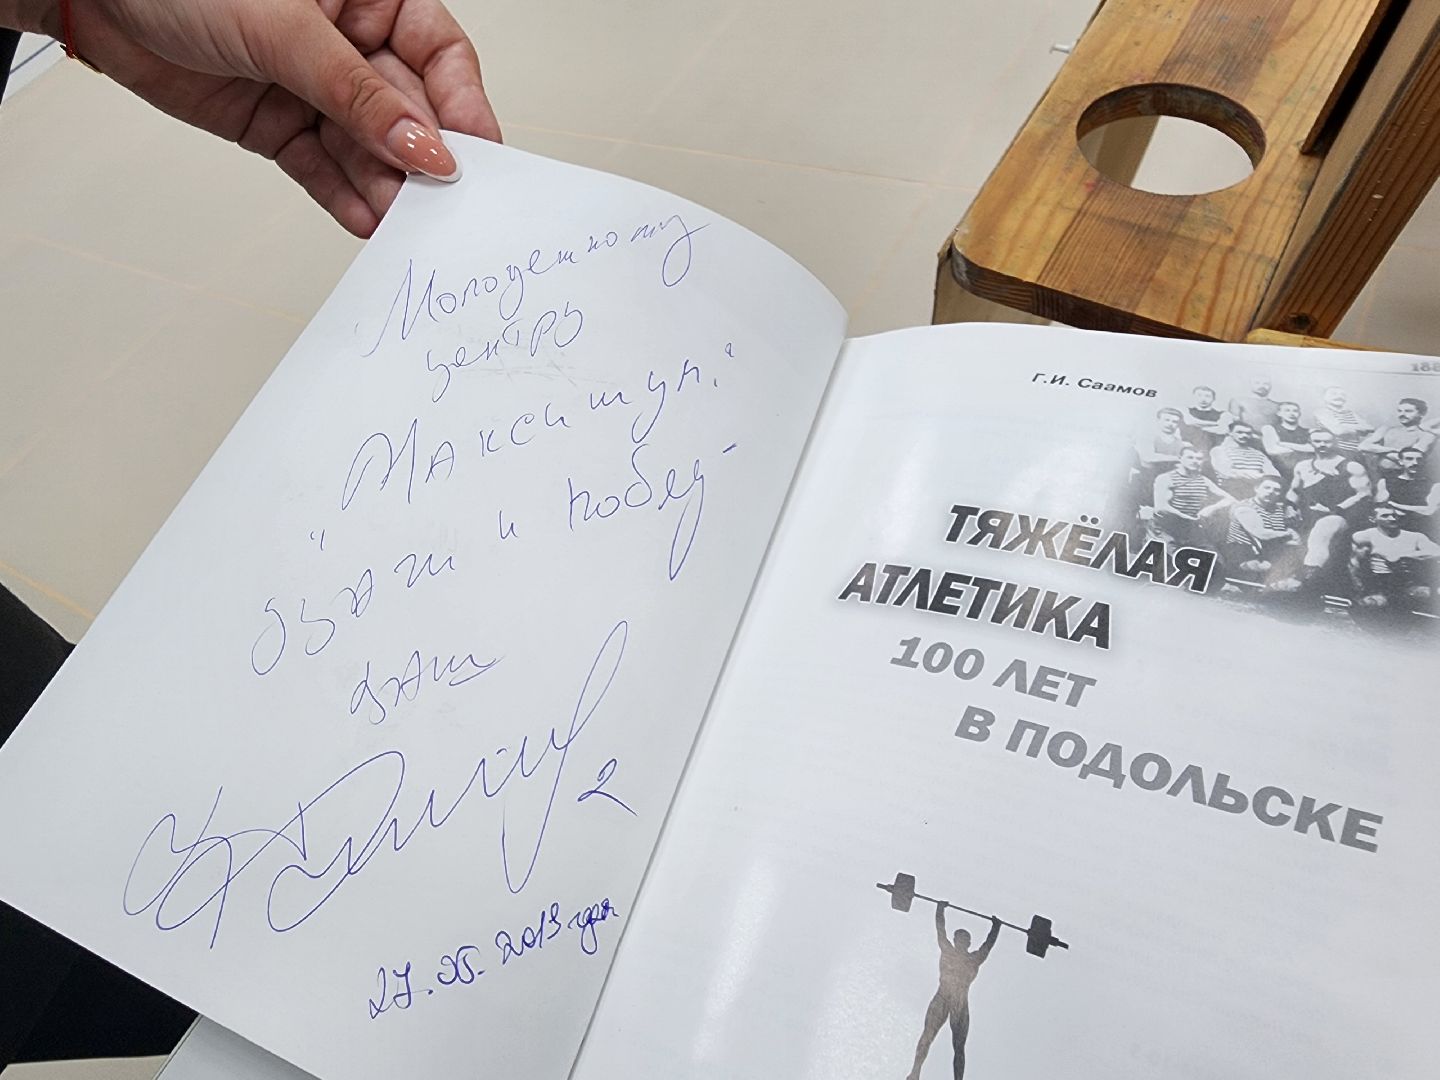 Молодежному
центру
"Максимум."
удачи и побед-
ваш
2
27.05.2013 года
Г.И. Саамов
188
ТЯЖЁЛАЯ
АТЛЕТИКА
100 ЛЕТ
В ПОДОЛЬСКЕ